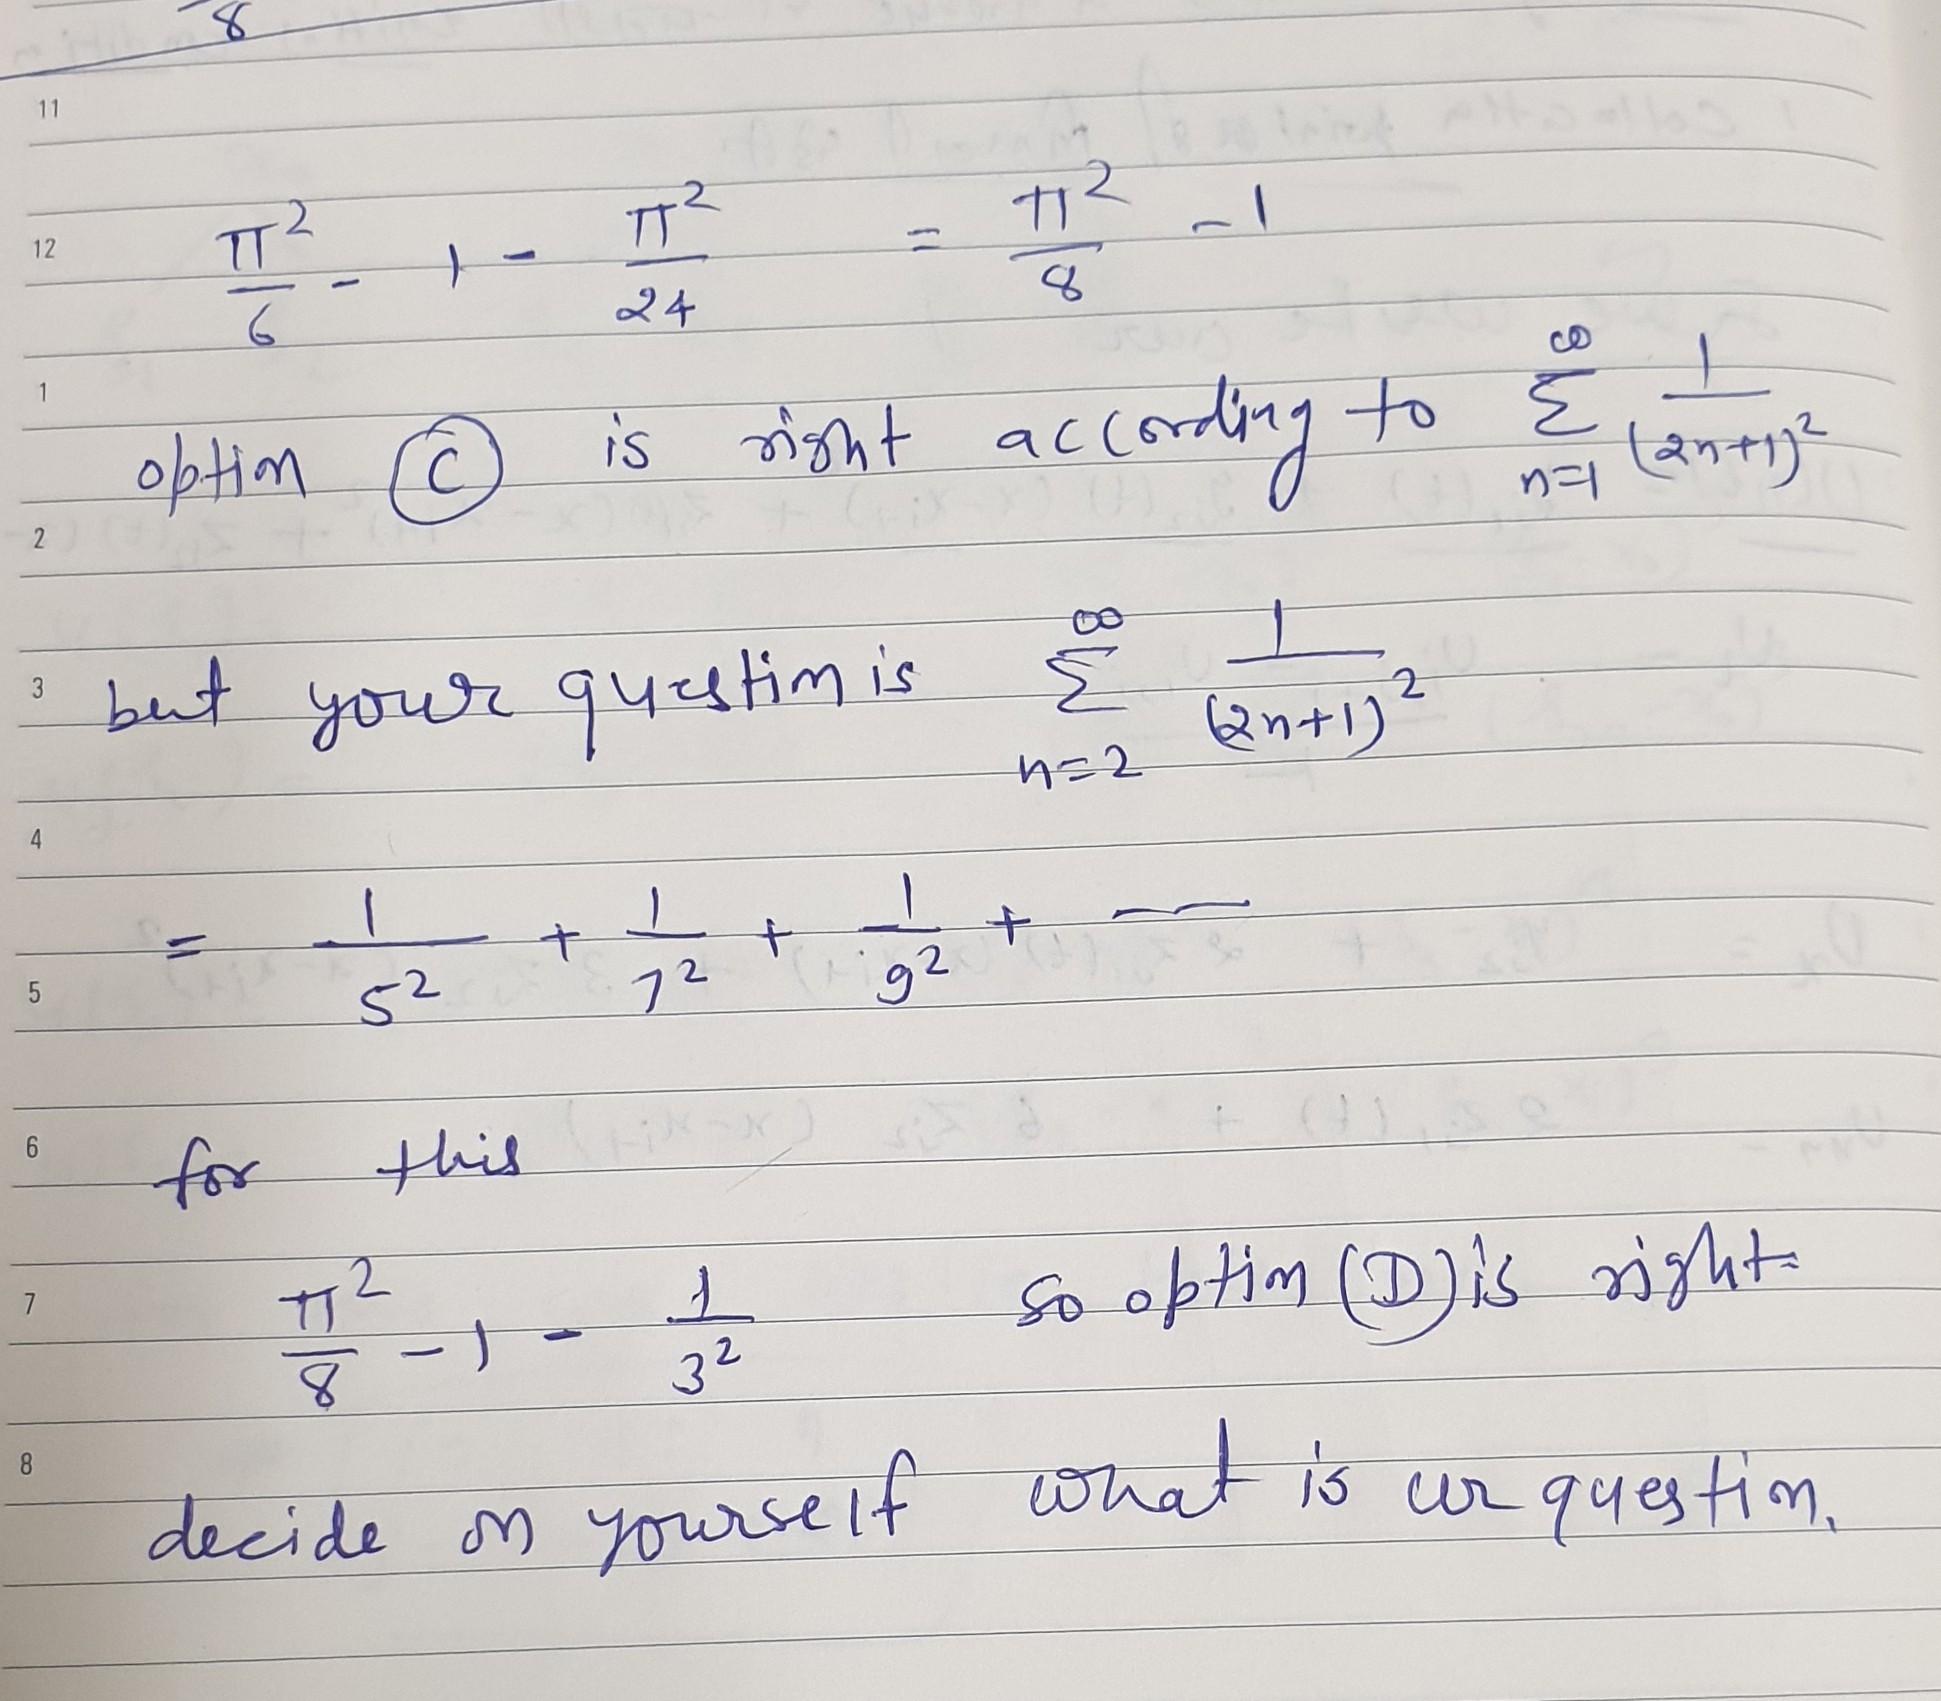 8
11
12 π²/6 - 1 - π²/24 = π²/8 - 1
1
option (C) is right according to ∞Σn=1 1/(2n+1)²
2
3 but your question is ∞Σn=2 1/(2n+1)²
4
5 = 1/5² + 1/7² + 1/9² + —
6 for this
7 π²/8 - 1 - 1/3² so option (D) is right
8
decide on yourself what is ur question.